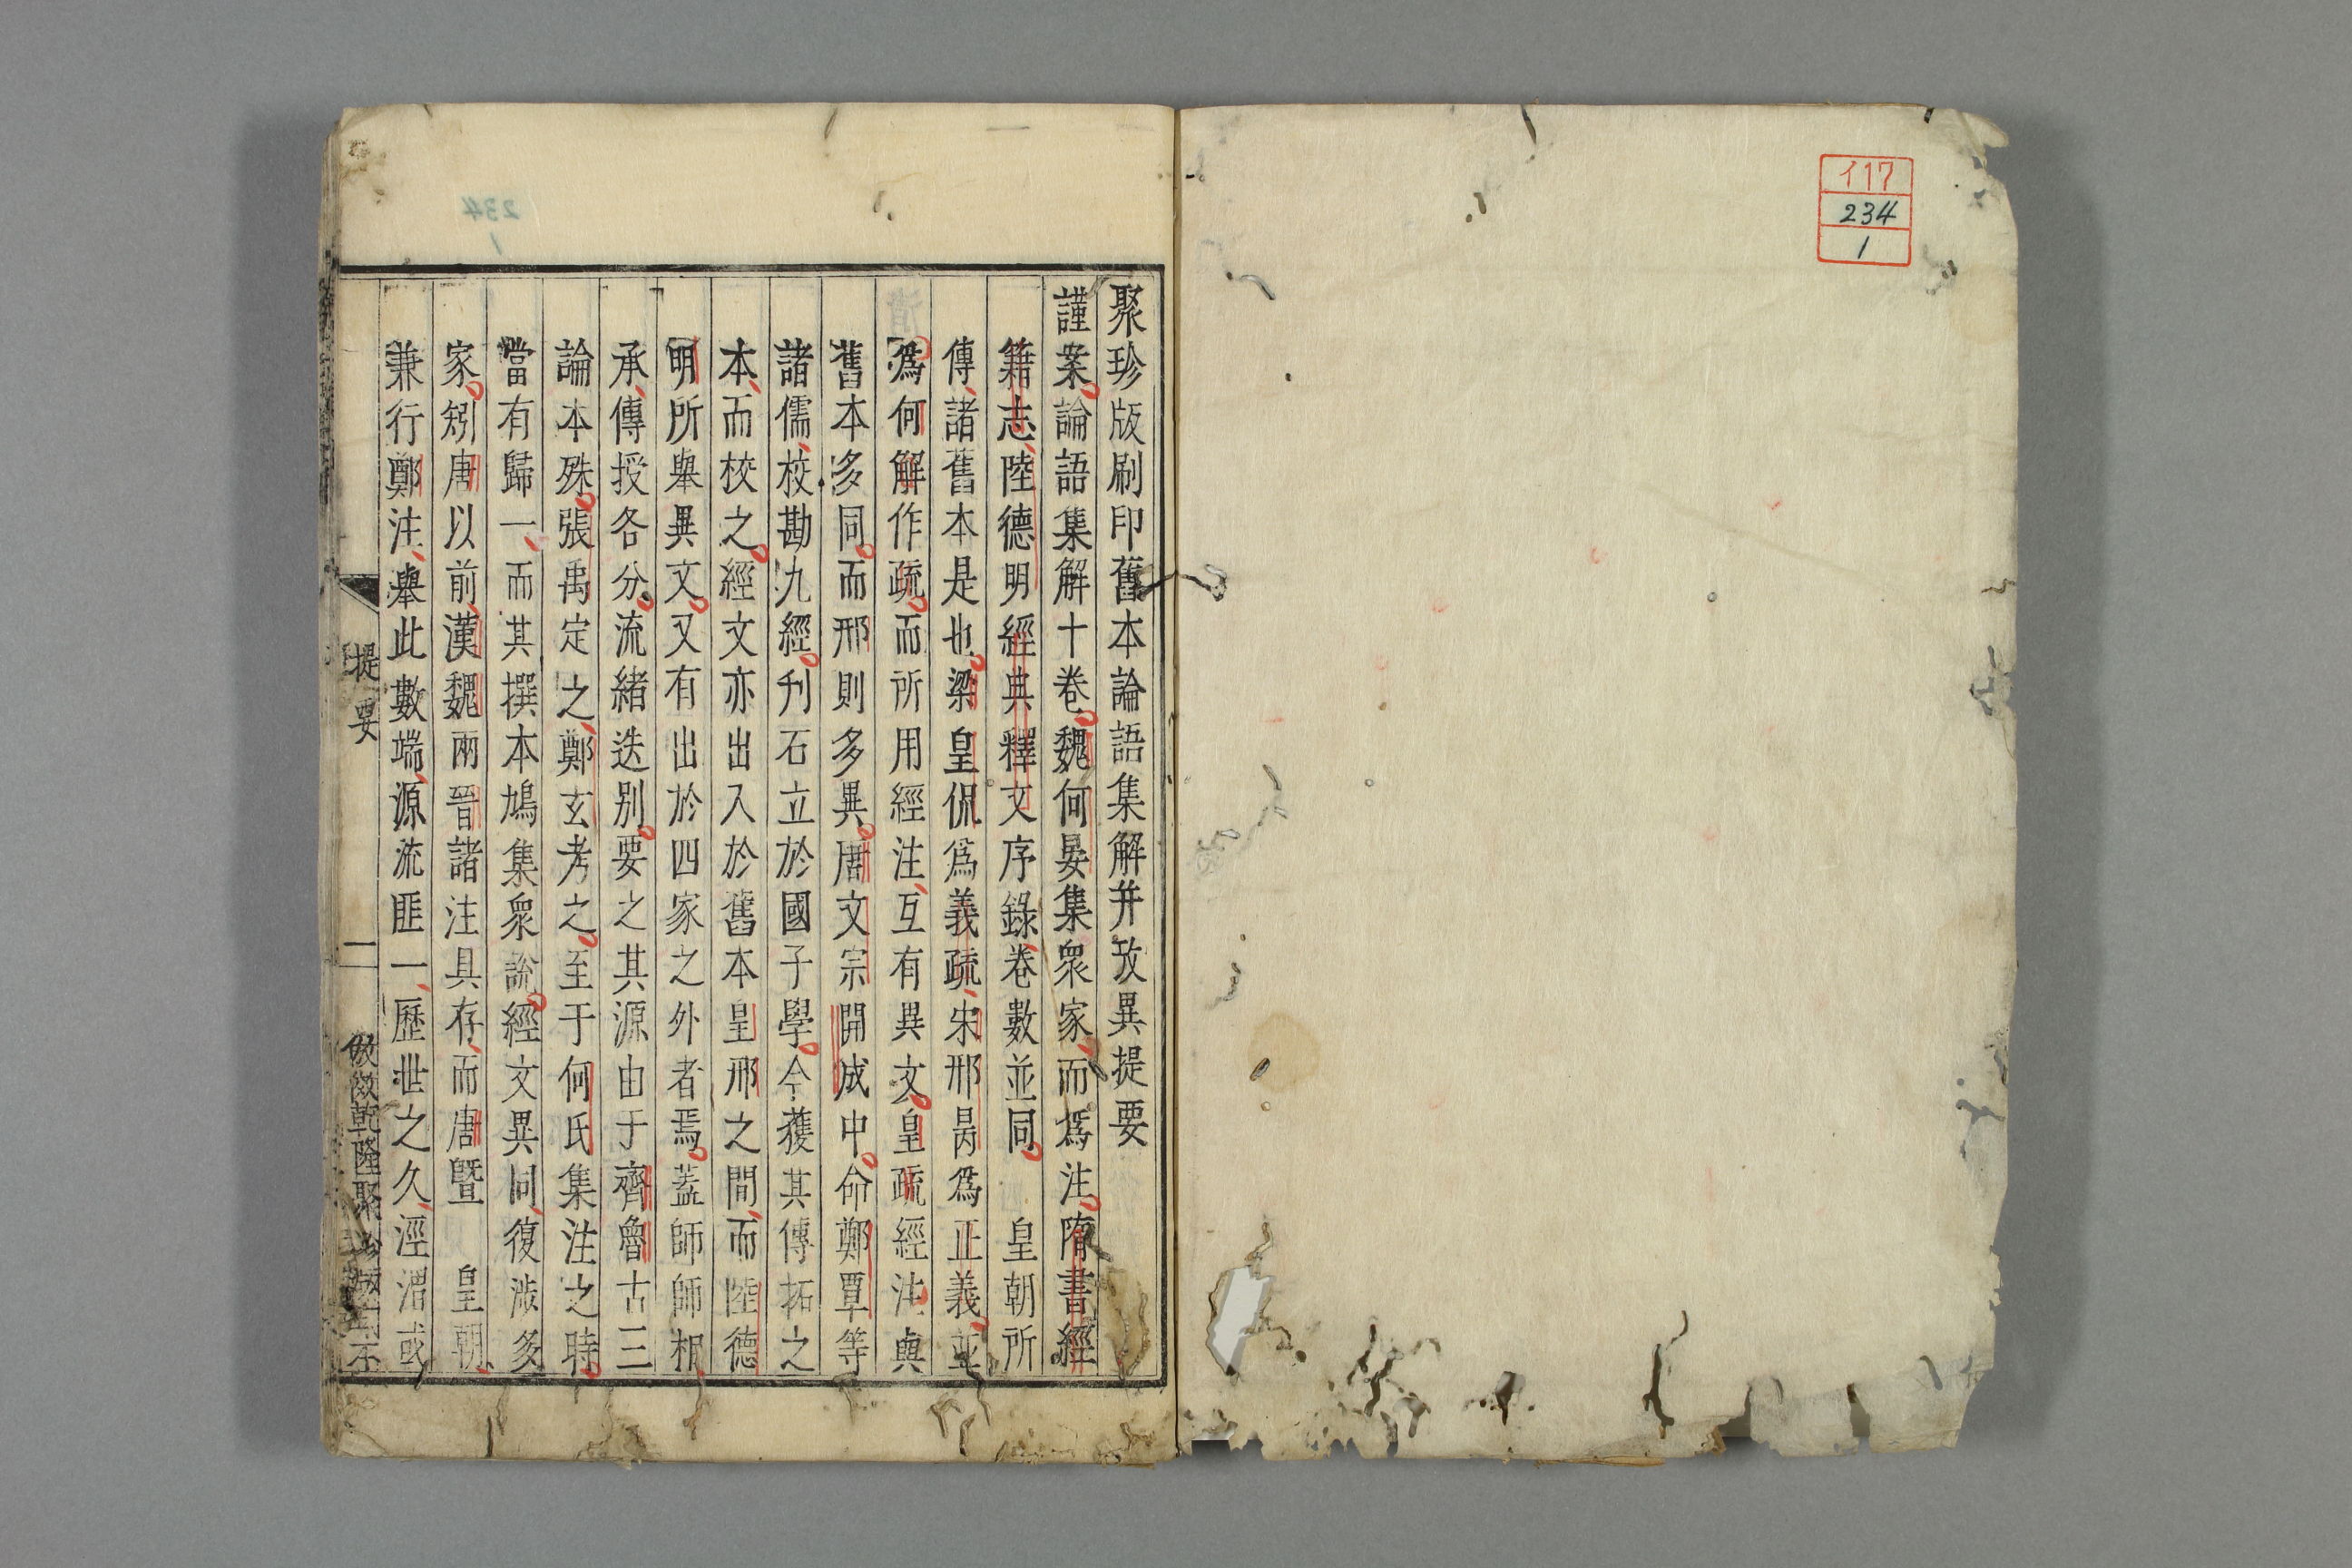 117
234
1
聚珍版刷印舊本論語集解并攷異提要
謹案論語集解十卷魏何晏集衆家而爲注隋書經
籍志陸德明經典釋文序錄卷數並同　皇朝所
傳諸舊本是也梁皇侃爲義疏宋邢昺爲正義並
爲何解作疏而所用經注互有異文皇疏經注與
舊本多同而邢則多異唐文宗開成中命鄭覃等
諸儒校勘九經刋石立於國子學今獲其傳拓之
本而校之經文亦出入於舊本皇邢之間而陸德
明所擧異文又有出於四家之外者焉蓋師師相
承傳授各分流緒迭別要之其源由于齊魯古三
論本殊張禹定之鄭玄考之至于何氏集注之時
當有歸一而其撰本鳩集衆說經文異同復涉多
家矧唐以前漢魏兩晉諸注具存而唐曁　皇朝
兼行鄭注擧此數端源流匪一歷世之久涇渭或
提要
一
倣做乾隆聚珍